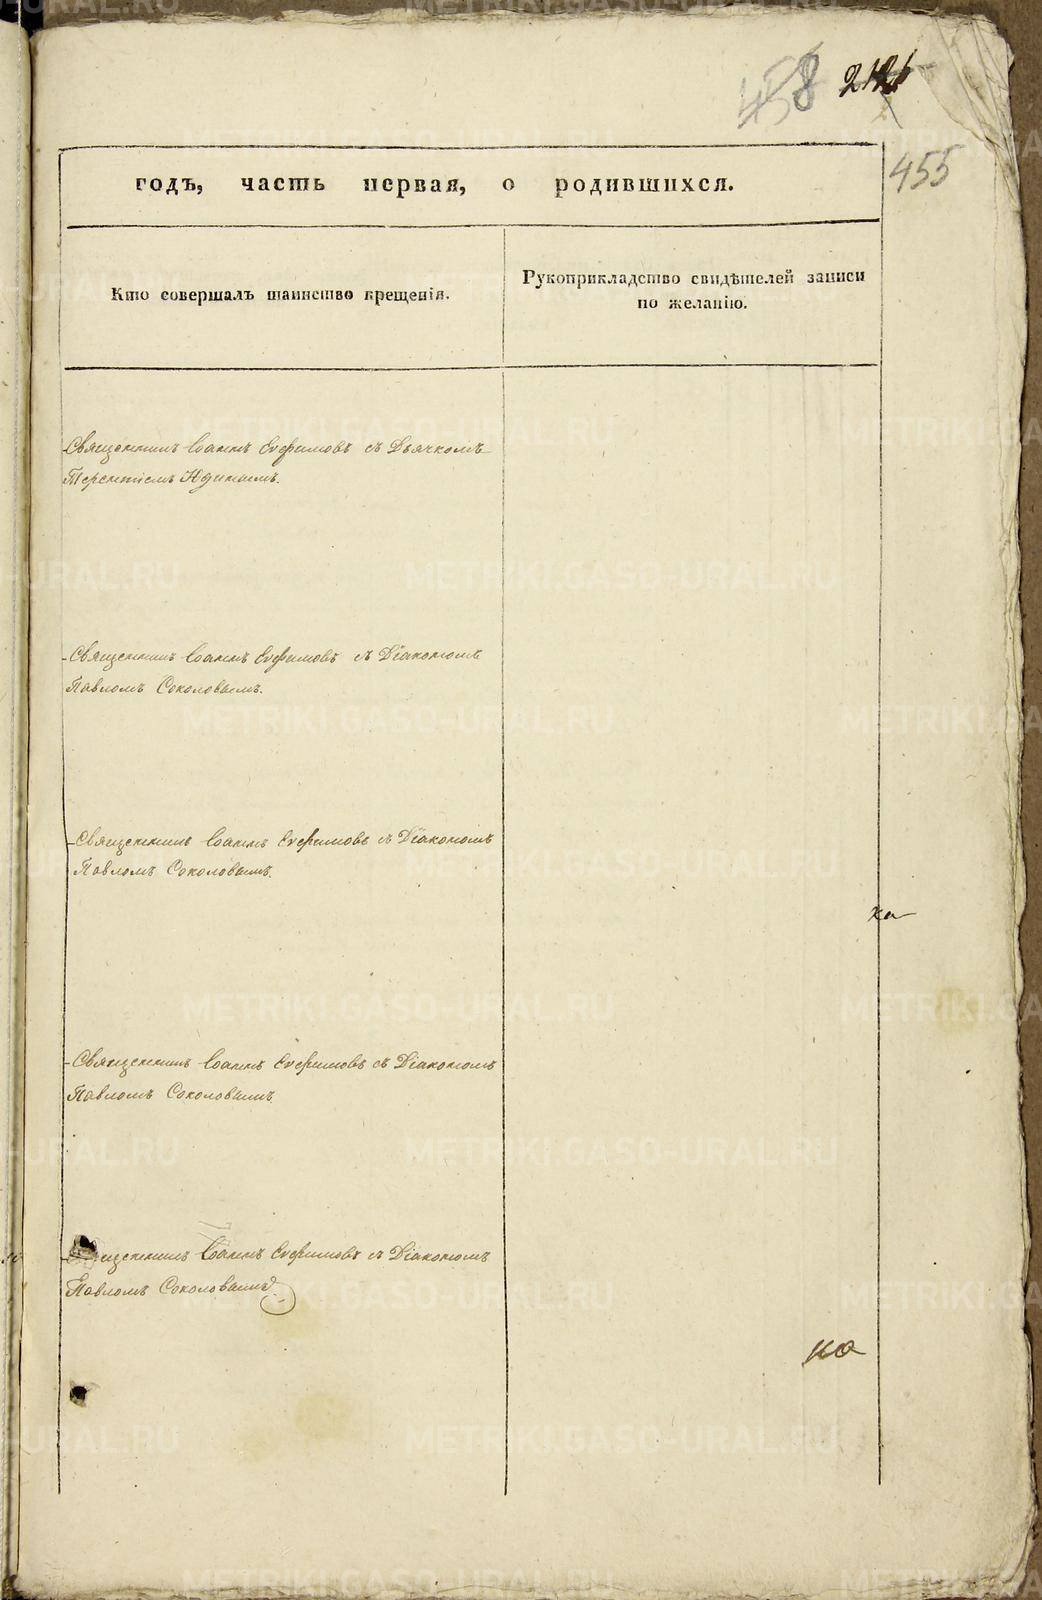 458
455
годъ, часть первая, о родившихся.
Кто совершалъ таинство крещенія.
Рукоприкладство свидѣтелей записи
по желанію.
Священникъ Іоаннъ Евфимовъ съ Дьячкомъ
Терентіемъ
Священникъ Іоаннъ Евфимовъ съ Діакономъ
Павломъ Соколовымъ.
Священникъ Іоаннъ Евфимовъ съ Діакономъ
Павломъ Соколовымъ.
ка
Священникъ Іоаннъ Евфимовъ съ Діакономъ
Павломъ Соколовымъ.
щенникъ Іоаннъ Евфимовъ съ Діакономъ
Павломъ Соколовымъ.
METRIKI.GASO-URAL.RU